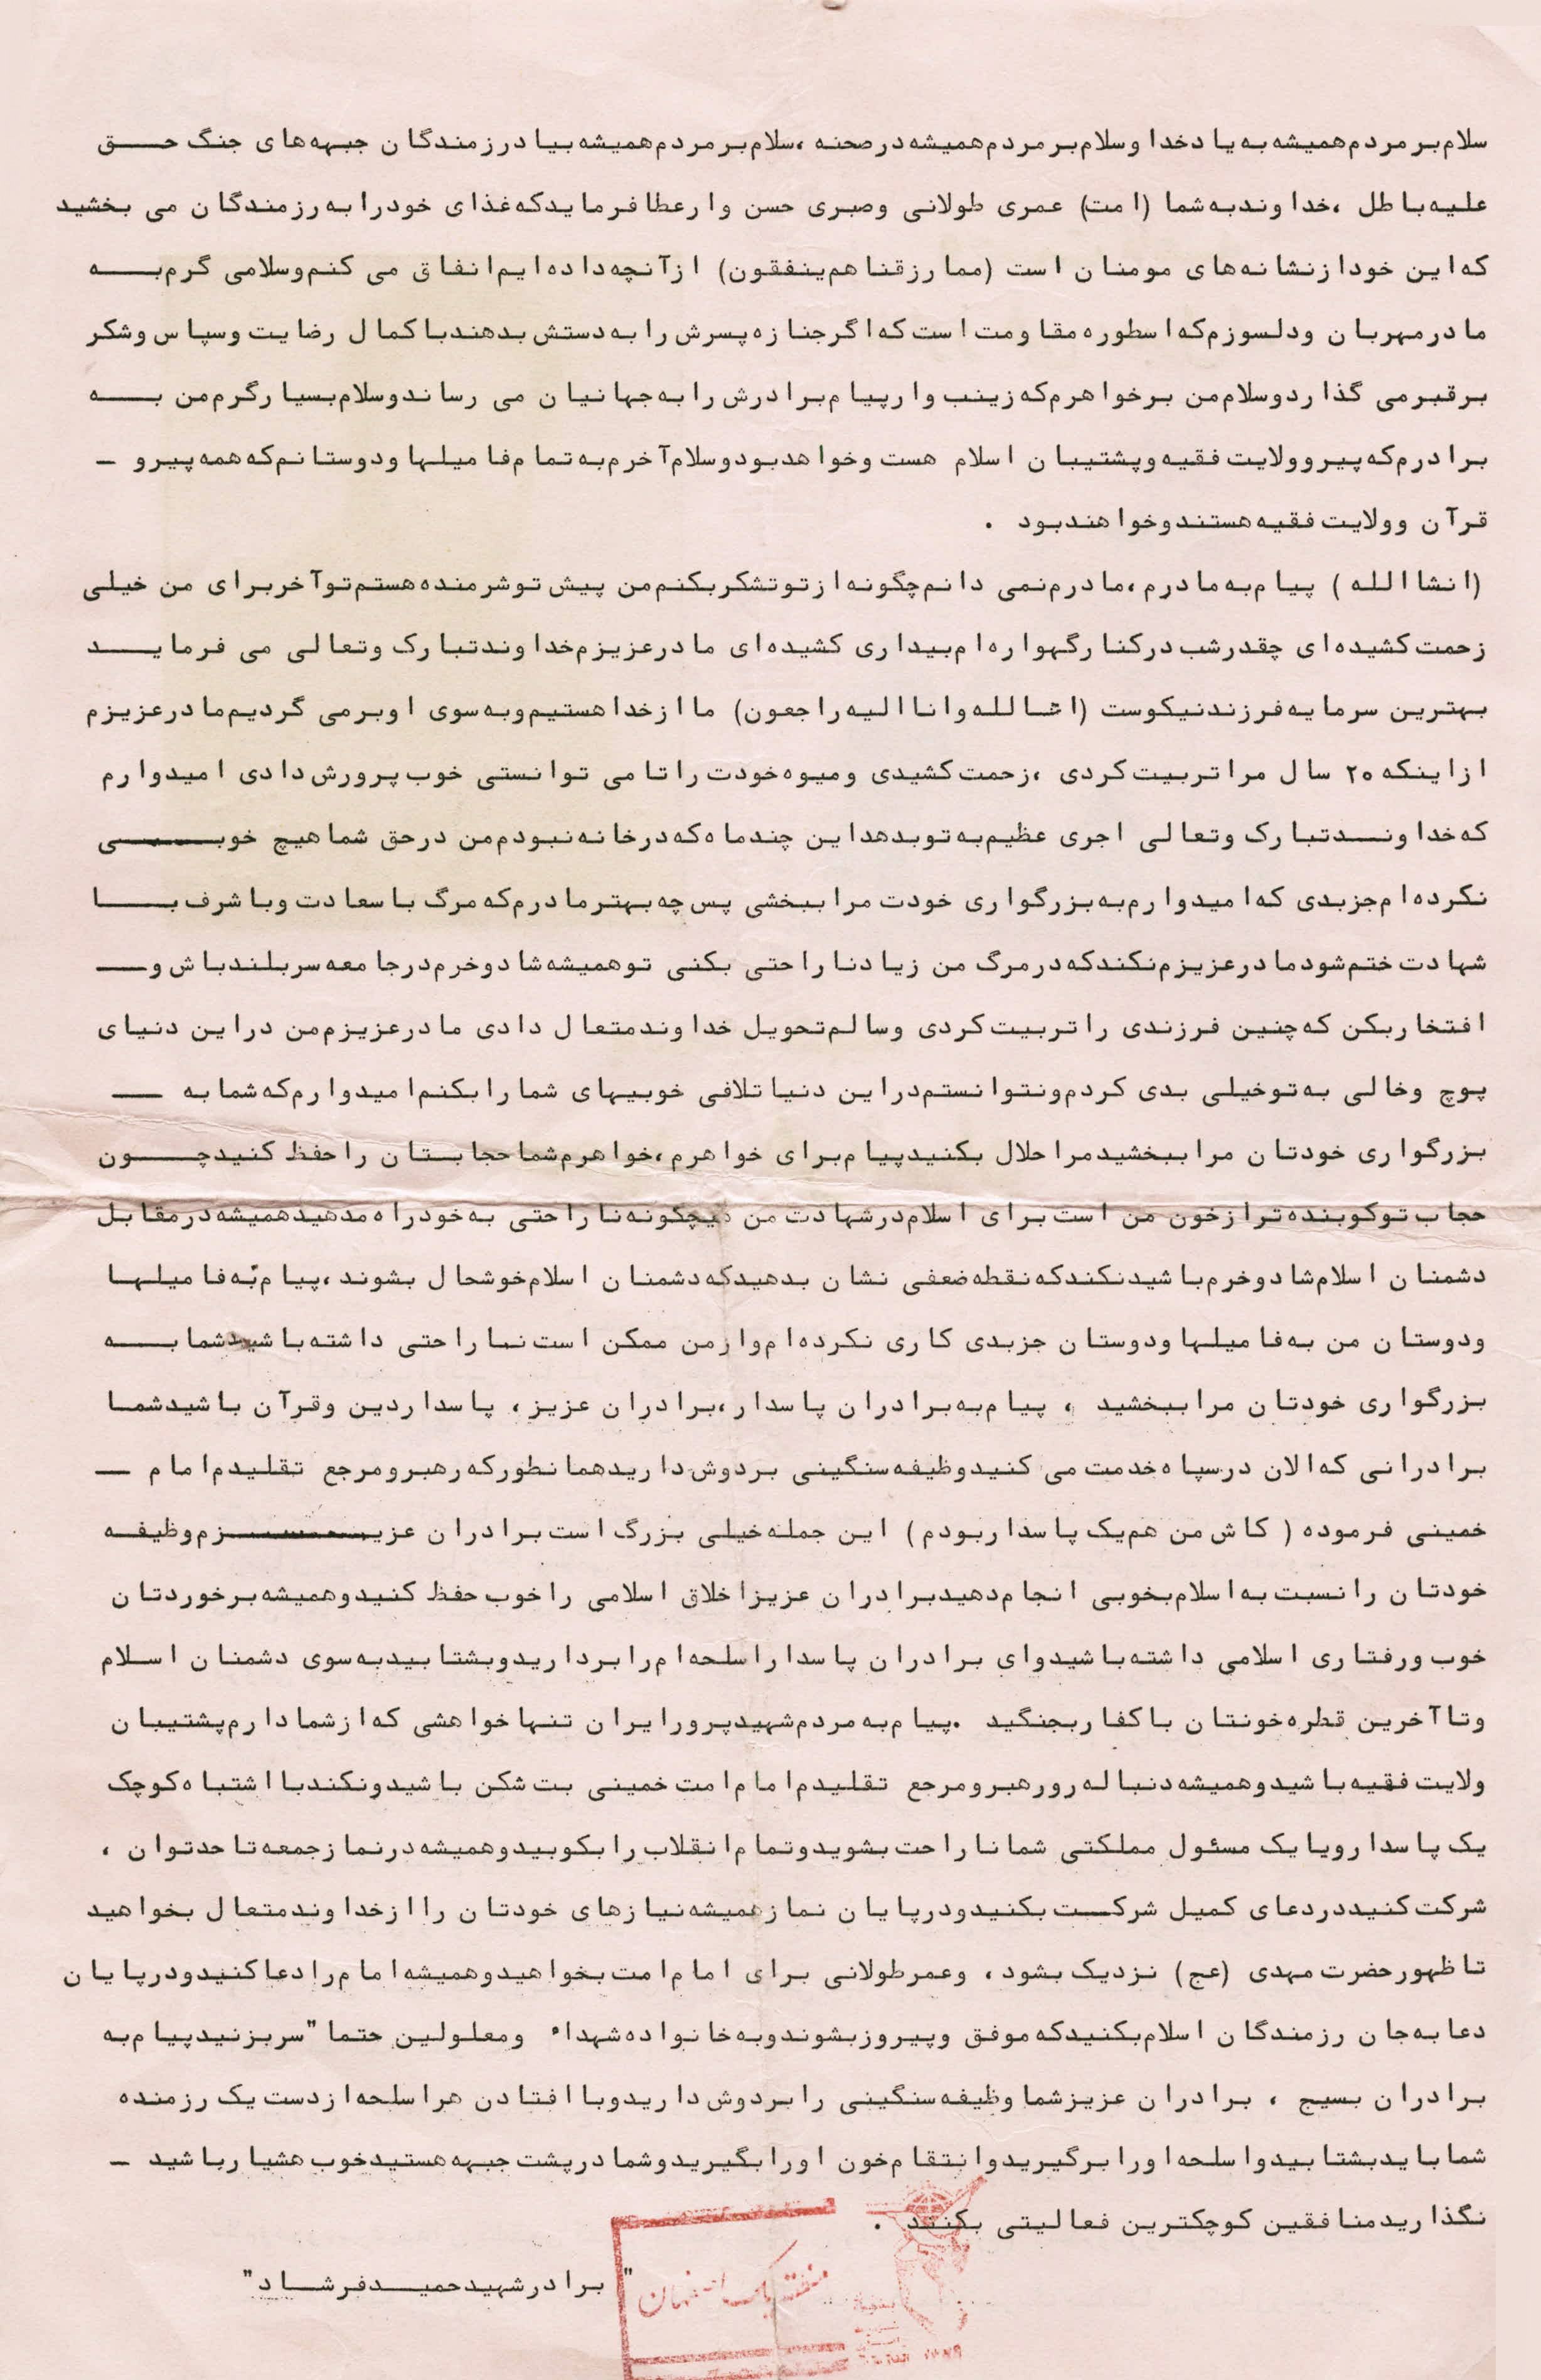 سلام بر مردم همیشه به یاد خدا و سلام بر مردم همیشه در صحنه ، سلام بر مردم همیشه بیاد رزمندگان جبهه های جنگ حق
علیه باطل ، خداوند به شما (امت) عمری طولانی و صبری حسن وار عطا فرماید که غذای خود را به رزمندگان می بخشید
که این خود از نشانه های مومنان است (مما رزقنا هم ینفقون) از آنچه داده ایم انفاق می کنم و سلامی گرم به
مادر مهربان و دلسوزم که اسطوره مقاومت است که اگر جنازه پسرش را به دستش بدهند با کمال رضایت و سپاس و شکر
بر قبر می گذارد و سلام من بر خواهرم که زینب وار پیام برادرش را به جهانیان می رساند و سلام بسیار گرم من به
برادرم که پیرو ولایت فقیه و پشتیبان اسلام هست و خواهد بود و سلام آخرم به تمام فامیلها و دوستانم که همه پیرو -
قرآن و ولایت فقیه هستند و خواهند بود .
(انشاالله) پیام به مادرم ، مادرم نمی دانم چگونه از تو تشکر بکنم من پیش تو شرمنده هستم تو آخر برای من خیلی
زحمت کشیده ای چقدر شب در کنار گهواره ام بیداری کشیده ای مادر عزیزم خداوند تبارک و تعالی می فرماید
بهترین سرمایه فرزند نیکوست (انا لله و انا الیه راجعون) ما از خدا هستیم و به سوی او بر می گردیم مادر عزیزم
از اینکه ۲۰ سال مرا تربیت کردی ، زحمت کشیدی و میوه خودت را تا می توانستی خوب پرورش دادی امیدوارم
که خداوند تبارک و تعالی اجری عظیم به تو بدهد این چند ماه که در خانه نبودم من در حق شما هیچ خوبی
نکرده ام جز بدی که امیدوارم به بزرگواری خودت مرا ببخشی پس چه بهتر مادرم که مرگ با سعادت و با شرف با
شهادت ختم شود مادر عزیزم نکند که در مرگ من زیاد ناراحتی بکنی تو همیشه شاد و خرم در جامعه سربلند باش و -
افتخار بکن که چنین فرزندی را تربیت کردی و سالم تحویل خداوند متعال دادی مادر عزیزم من در این دنیای
پوچ و خالی به تو خیلی بدی کردم و نتوانستم در این دنیا تلافی خوبیهای شما را بکنم امیدوارم که شما به -
بزرگواری خودتان مرا ببخشید مرا حلال بکنید پیام برای خواهرم ، خواهرم شما حجابتان را حفظ کنید چون
حجاب تو کوبنده تر از خون من است برای اسلام در شهادت من هیچگونه ناراحتی به خود راه مدهید همیشه در مقابل
دشمنان اسلام شاد و خرم باشید نکند که نقطه ضعفی نشان بدهید که دشمنان اسلام خوشحال بشوند ، پیام به فامیلها
و دوستان من به فامیلها و دوستان جز بدی کاری نکرده ام و از من ممکن است ناراحتی داشته باشید شما به
بزرگواری خودتان مرا ببخشید ، پیام به برادران پاسدار ، برادران عزیز ، پاسدار دین و قرآن باشید شما
برادرانی که الان در سپاه خدمت می کنید وظیفه سنگینی بر دوش دارید همانطور که رهبر و مرجع تقلیدم امام -
خمینی فرموده ( کاش من هم یک پاسدار بودم ) این جمله خیلی بزرگ است برادران عزیزم وظیفه
خودتان را نسبت به اسلام بخوبی انجام دهید برادران عزیز اخلاق اسلامی را خوب حفظ کنید و همیشه برخوردتان
خوب و رفتاری اسلامی داشته باشید و ای برادران پاسدار اسلحه ام را بردارید و بشتابید به سوی دشمنان اسلام
و تا آخرین قطره خونتان با کفار بجنگید . پیام به مردم شهیدپرور ایران تنها خواهشی که از شما دارم پشتیبان
ولایت فقیه باشید و همیشه دنباله رو رهبر و مرجع تقلیدم امام امت خمینی بت شکن باشید و نکند با اشتباه کوچک
یک پاسدار و یا یک مسئول مملکتی شما ناراحت بشوید و تمام انقلاب را بکوبید و همیشه در نماز جمعه تا حد توان ،
شرکت کنید در دعای کمیل شرکت بکنید و در پایان نماز همیشه نیازهای خودتان را از خداوند متعال بخواهید
تا ظهور حضرت مهدی (عج) نزدیک بشود ، و عمر طولانی برای امام امت بخواهید و همیشه امام را دعا کنید و در پایان
دعا به جان رزمندگان اسلام بکنید که موفق و پیروز بشوند و به خانواده شهداء و معلولین حتما" سر بزنید پیام به
برادران بسیج ، برادران عزیز شما وظیفه سنگینی را بر دوش دارید و با افتادن هر اسلحه از دست یک رزمنده
شما باید بشتابید و اسلحه او را برگیرید و انتقام خون او را بگیرید و شما در پشت جبهه هستید خوب هشیار باشید -
نگذارید منافقین کوچکترین فعالیتی بکنند .
" برادر شهید حمید فرشاد "
منطقه یک اصفهان